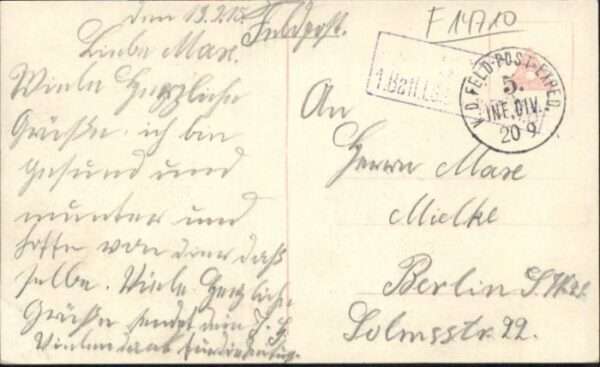 den 19.9.15.
Feldpost.
F 14710
Liebe Max.
Viele Herzliche
Grüße. ich bin
gesund und
munter und
hoffe von dir daß
selbe. Viele Herzliche
Grüße sendet dein
Vielen dank für
1. Batl.
K.D. FELD-POST-EXPED.
5.
INF.DIV.
20 9
An
Herrn Max
Mielke
Berlin S.
Solmsstr. 22.